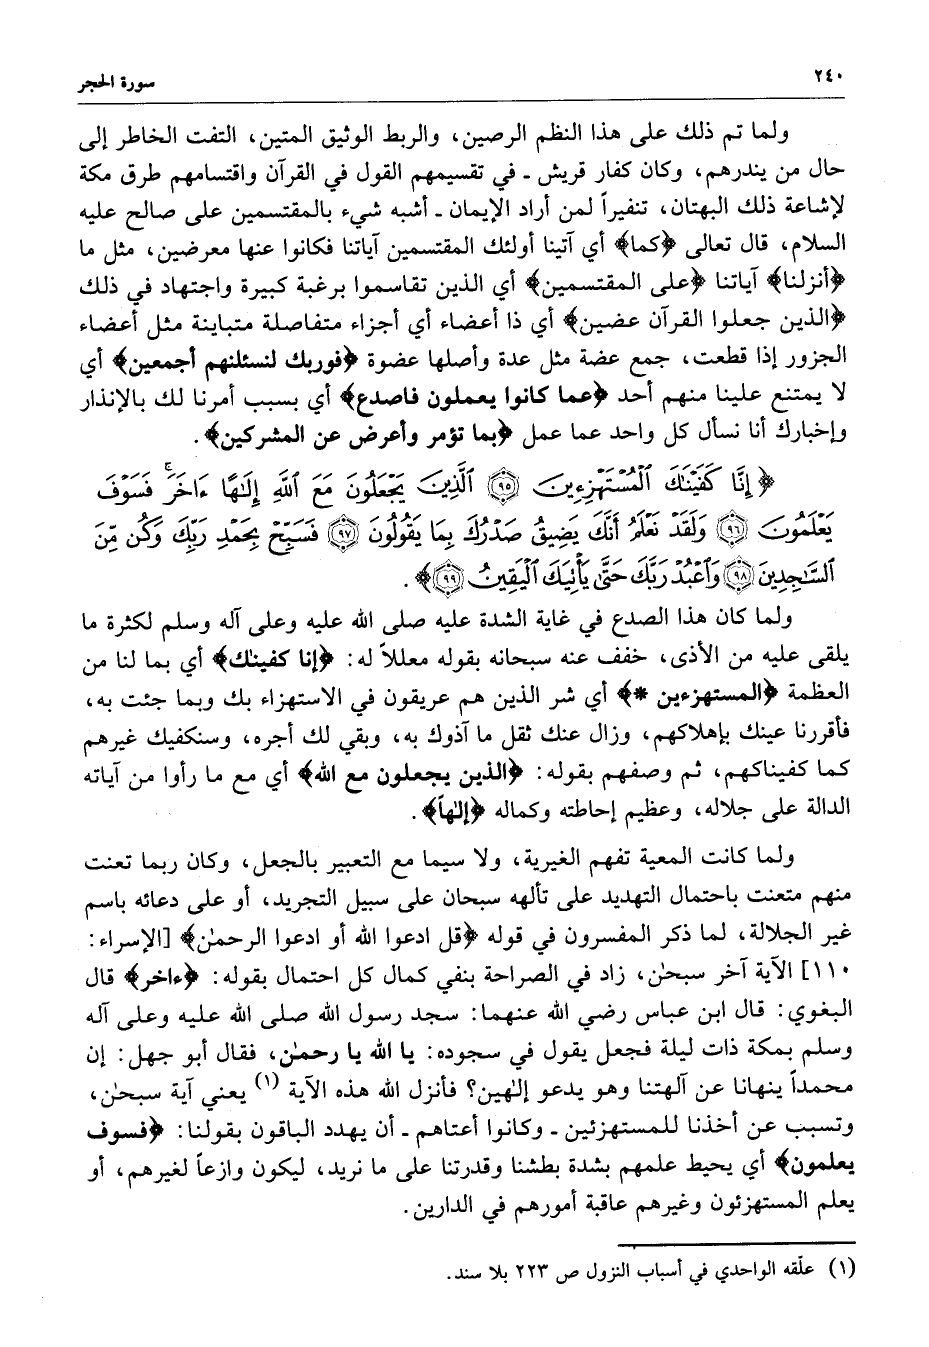 ٢٤٠
سورة الحجر
ولما تم ذلك على هذا النظم الرصين، والربط الوثيق المتين، التفت الخاطر إلى
حال من يندرهم، وكان كفار قريش ـ في تقسيمهم القول في القرآن واقتسامهم طرق مكة
لإشاعة ذلك البهتان، تنفيراً لمن أراد الإيمان ـ أشبه شيء بالمقتسمين على صالح عليه
السلام، قال تعالى ﴿كما﴾ أي آتينا أولئك المقتسمين آياتنا فكانوا عنها معرضين، مثل ما
﴿أنزلنا﴾ آياتنا ﴿على المقتسمين﴾ أي الذين تقاسموا برغبة كبيرة واجتهاد في ذلك
﴿الذين جعلوا القرآن عضين﴾ أي ذا أعضاء أي أجزاء متفاصلة متباينة مثل أعضاء
الجزور إذا قطعت، جمع عضة مثل عدة وأصلها عضوة ﴿فوربك لنسئلنهم أجمعين﴾ أي
لا يمتنع علينا منهم أحد ﴿عما كانوا يعملون فاصدع﴾ أي بسبب أمرنا لك بالإنذار
وإخبارك أنا نسأل كل واحد عما عمل ﴿بما تؤمر وأعرض عن المشركين﴾.
﴿إِنَّا كَفَيْنَٰكَ ٱلْمُسْتَهْزِءِينَ ﴿٩٥﴾ ٱلَّذِينَ يَجْعَلُونَ مَعَ ٱللَّهِ إِلَٰهًا ءَاخَرَ ۚ فَسَوْفَ
يَعْلَمُونَ ﴿٩٦﴾ وَلَقَدْ نَعْلَمُ أَنَّكَ يَضِيقُ صَدْرُكَ بِمَا يَقُولُونَ ﴿٩٧﴾ فَسَبِّحْ بِحَمْدِ رَبِّكَ وَكُن مِّنَ
ٱلسَّٰجِدِينَ ﴿٩٨﴾ وَٱعْبُدْ رَبَّكَ حَتَّىٰ يَأْتِيَكَ ٱلْيَقِينُ ﴿٩٩﴾﴾.
ولما كان هذا الصدع في غاية الشدة عليه صلى الله عليه وعلى آله وسلم لكثرة ما
يلقى عليه من الأذى، خفف عنه سبحانه بقوله معللاً له: ﴿إنا كفينٰك﴾ أي بما لنا من
العظمة ﴿المستهزءين *﴾ أي شر الذين هم عريقون في الاستهزاء بك وبما جئت به،
فأقررنا عينك بإهلاكهم، وزال عنك ثقل ما آذوك به، وبقي لك أجره، وسنكفيك غيرهم
كما كفيناكهم، ثم وصفهم بقوله: ﴿الذين يجعلون مع الله﴾ أي مع ما رأوا من آياته
الدالة على جلاله، وعظيم إحاطته وكماله ﴿إلٰهاً﴾.
ولما كانت المعية تفهم الغيرية، ولا سيما مع التعبير بالجعل، وكان ربما تعنت
منهم متعنت باحتمال التهديد على تألهه سبحان على سبيل التجريد، أو على دعائه باسم
غير الجلالة، لما ذكر المفسرون في قوله ﴿قل ادعوا الله أو ادعوا الرحمن﴾ [الإسراء:
١١٠] الآية آخر سبحٰن، زاد في الصراحة بنفي كمال كل احتمال بقوله: ﴿ءاخر﴾ قال
البغوي: قال ابن عباس رضي الله عنهما: سجد رسول الله صلى الله عليه وعلى آله
وسلم بمكة ذات ليلة فجعل يقول في سجوده: يا الله يا رحمٰن، فقال أبو جهل: إن
محمداً ينهانا عن آلهتنا وهو يدعو إلٰهين؟ فأنزل الله هذه الآية (١) يعني آية سبحٰن،
وتسبب عن أخذنا للمستهزئين ـ وكانوا أعتاهم ـ أن يهدد الباقون بقولنا: ﴿فسوف
يعلمون﴾ أي يحيط علمهم بشدة بطشنا وقدرتنا على ما نريد، ليكون وازعاً لغيرهم، أو
يعلم المستهزئون وغيرهم عاقبة أمورهم في الدارين.
(١) علّقه الواحدي في أسباب النزول ص ٢٢٣ بلا سند.